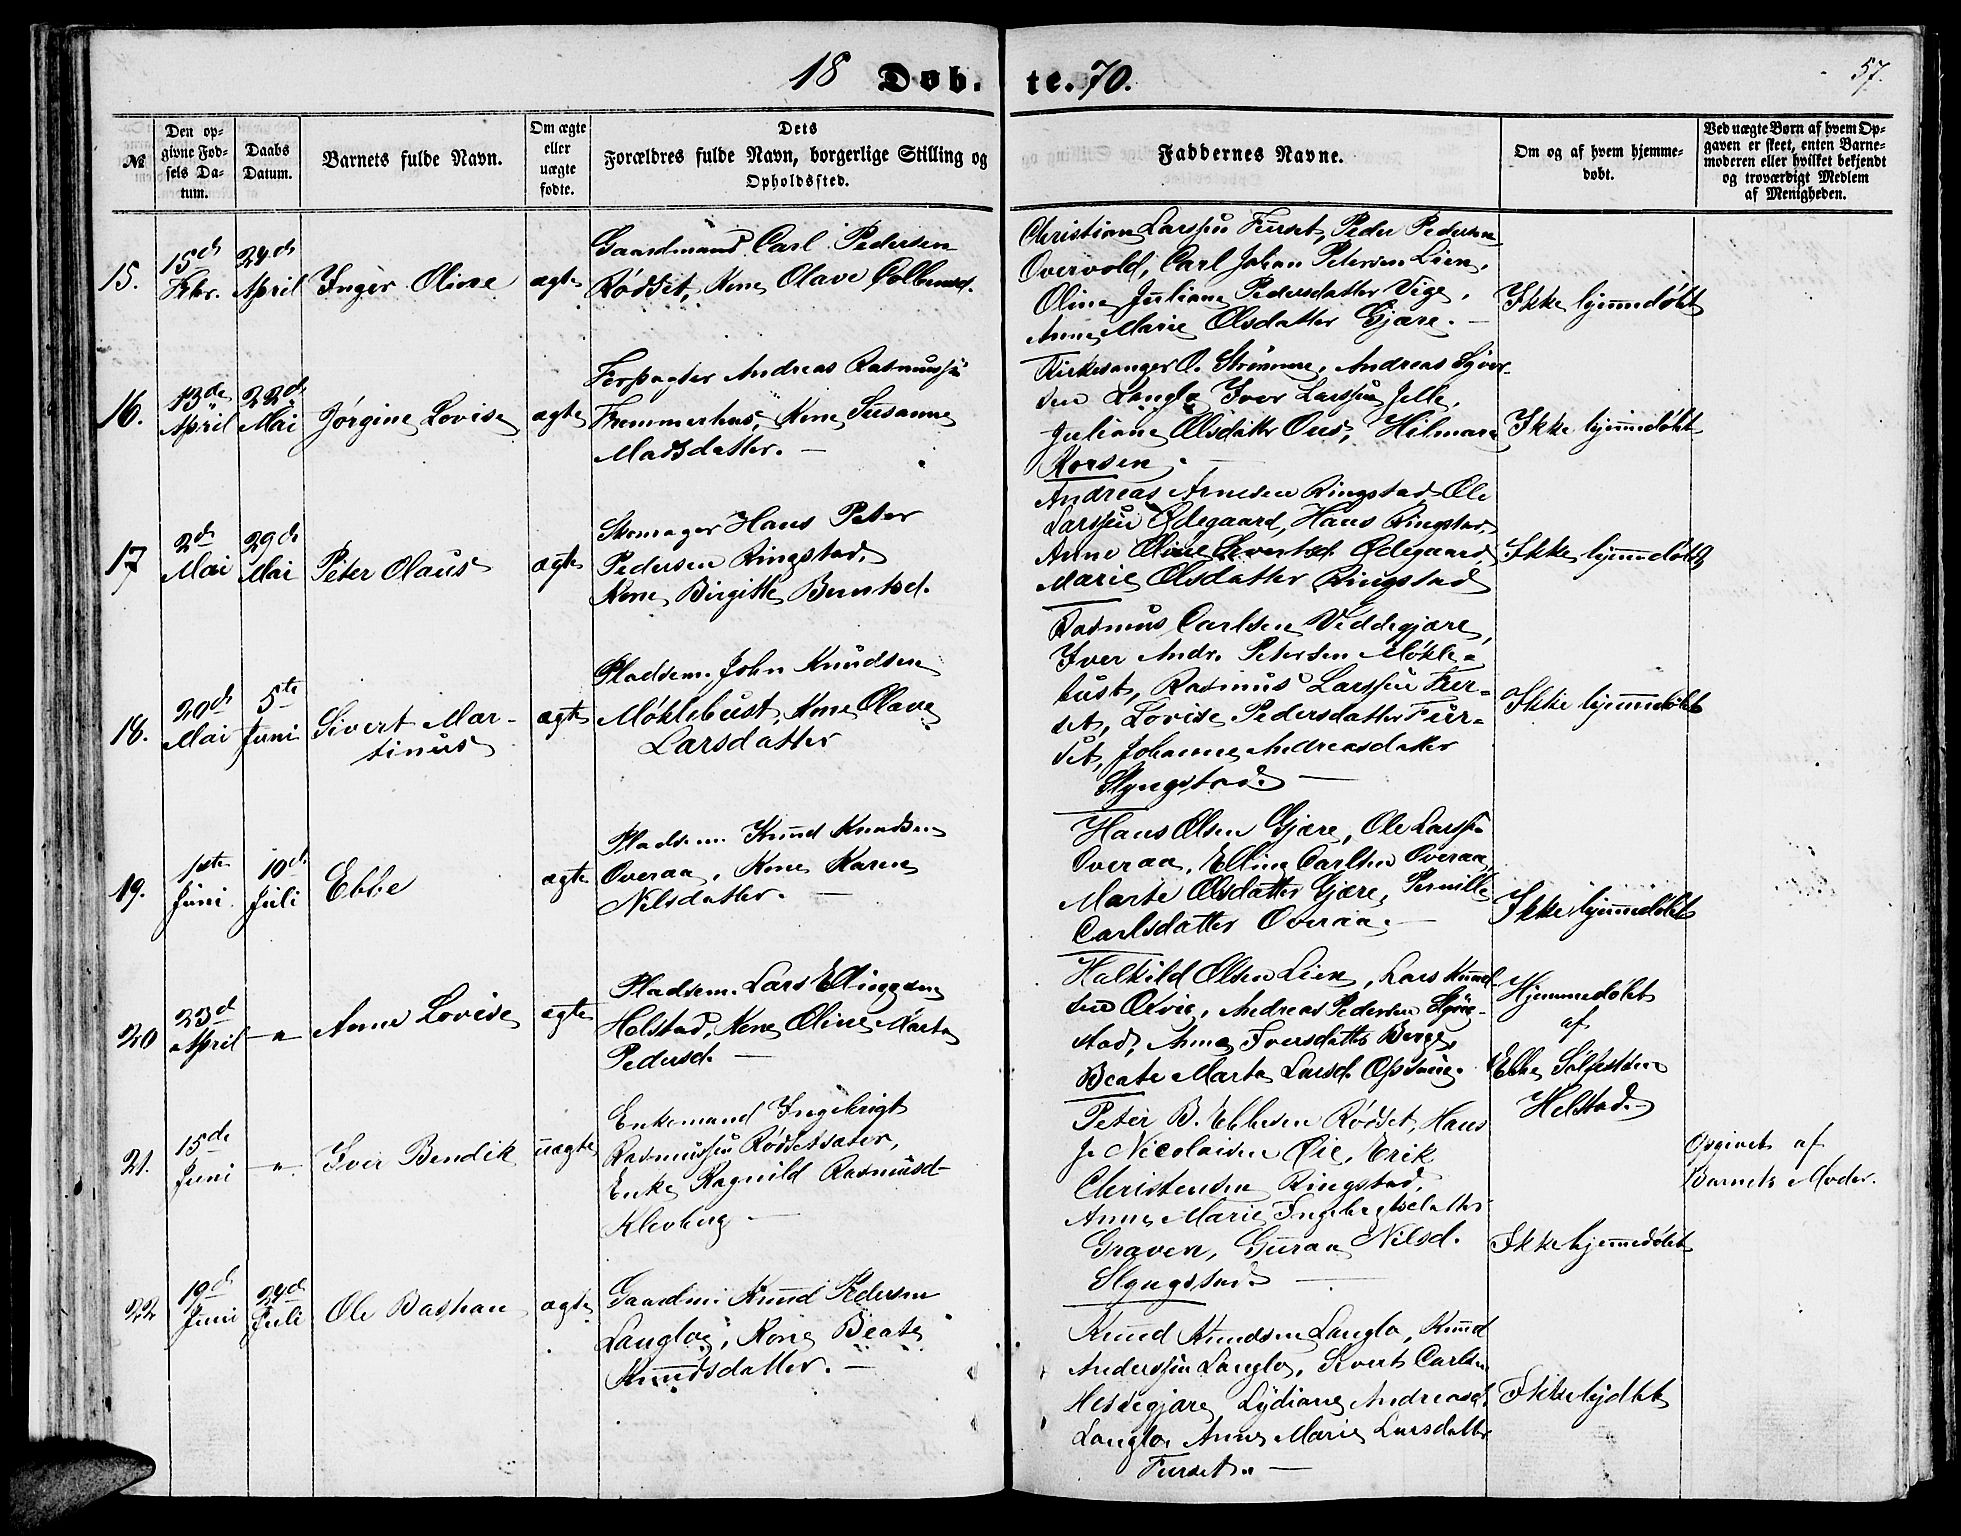 18 Døb.te. 70.
57.
No
Den opgivne Fødsels Datum.
Daabs Datum.
Barnets fulde Navn.
Om ægte eller uægte fødte.
Dets
Forældres fulde Navn, borgerlige Stilling og
Opholdssted.
Faddernes Navne.
Om og af hvem hjemmedøbt.
Ved uægte Børn af hvem Opgaven er skeet, enten Barnemoderen eller hvilket bekjendt og troværdigt Medlem af Menigheden.
15.
15de Febr.
24de April
Inger Oline
ægte
Gaardmand Carl Pedersen
Rødset, Kone Olave
Christian Larssen Furset, Peder Pedersen
Overvold, Carl Johan Petersen Lien,
Oline Juliane Pedersdatter Vige,
Anne Marie Olsdatter Gjære. —
Ikke hjemmedøbt
16.
13de April
22de Mai
Jørgine Lovise
ægte
Forpagter Andreas Rasmussen
Fremmerhus, Kone Susanne
Madsdatter. —
Kirkesanger O. Strømme, Andreas Syver-
sen Langlo Iver Larssen Jelle,
Juliane Olsdatter Ous, Hilmar
Korsen. —
Ikke hjemmedøbt
17
2den Mai
29de Mai
Peter Olaus
ægte
Skomager Hans Peter
Pedersen Ringstad,
Kone Birgitte Berntsd.
Andreas Arnesen Ringstad Ole
Larssen Ødegaard, Hans Ringstad,
Anne Oline Sivertsd. Ødegaard,
Marie Olsdatter Ringstad
Ikke hjemmedøbt
18.
20de Mai
5te Juni
Sivert Mar-
tinus
ægte
Pladsem. John Knudsen
Møklebust, Kone Olave
Larsdatter
Rasmus Carlsen Veddegjære,
Iver Andr. Petersen Møkle-
bust, Rasmus Larssen Fur-
set, Lovise Pedersdatter Fur-
set, Johanne Andreasdatter
Slyngstad. —
Ikke hjemmedøbt
19.
1ste Juni
10de Juli
Ebbe
ægte
Pladsem. Knud Knudsen
Overaa, Kone Karen
Nilsdatter. —
Hans Olsen Gjære, Ole Larssen
Overaa, Elling Carlsen Overaa
Marte Olsdatter Gjære, Pernille
Carlsdatter Overaa. —
Ikke hjemmedøbt
20
23de April
— " —
Anne Lovise
ægte
Pladsem. Lars Ellingsen
Helstad, Kone Oline Marta
Pedersd. —
Halkild Olsen Lien, Lars Knud-
sen, Andreas Pedersen Slyng-
stad, Anne Iversdatter Berge,
Beate Marta Larsd.
Hjemmedøbt
af
Ebbe
Helstad. —
21.
15de Juni
— " —
Iver Bendik
uægte
Enkemand Ingebrigt
Rasmussen Rødsetsæter,
Enke Ragnild Rasmusd.
Klevberg —
Peter B. Ebbesen Rødset, Hans
J. Nicolaisen Øie, Erik
Christensen Ringstad,
Anne Marie Ingebrigtsdatter
Graven, Guraa Nilsd.
Slyngstad. —
Ikke hjemmedøbt
Opgivet af
Barnets Moder.
22
19de Juni
24de Juli
Ole Bastian
ægte
Gaardm. Knud Pedersen
Langlo, Kone Beate
Knudsdatter. —
Knud Knudsen Langlo, Knud
Anderssen Langlo, Sivert Carlsen
Hessegjære Lydiane Andreasd.
Langlo, Anne Marie Larsdatter
Furset. —
Ikke hjdøbt